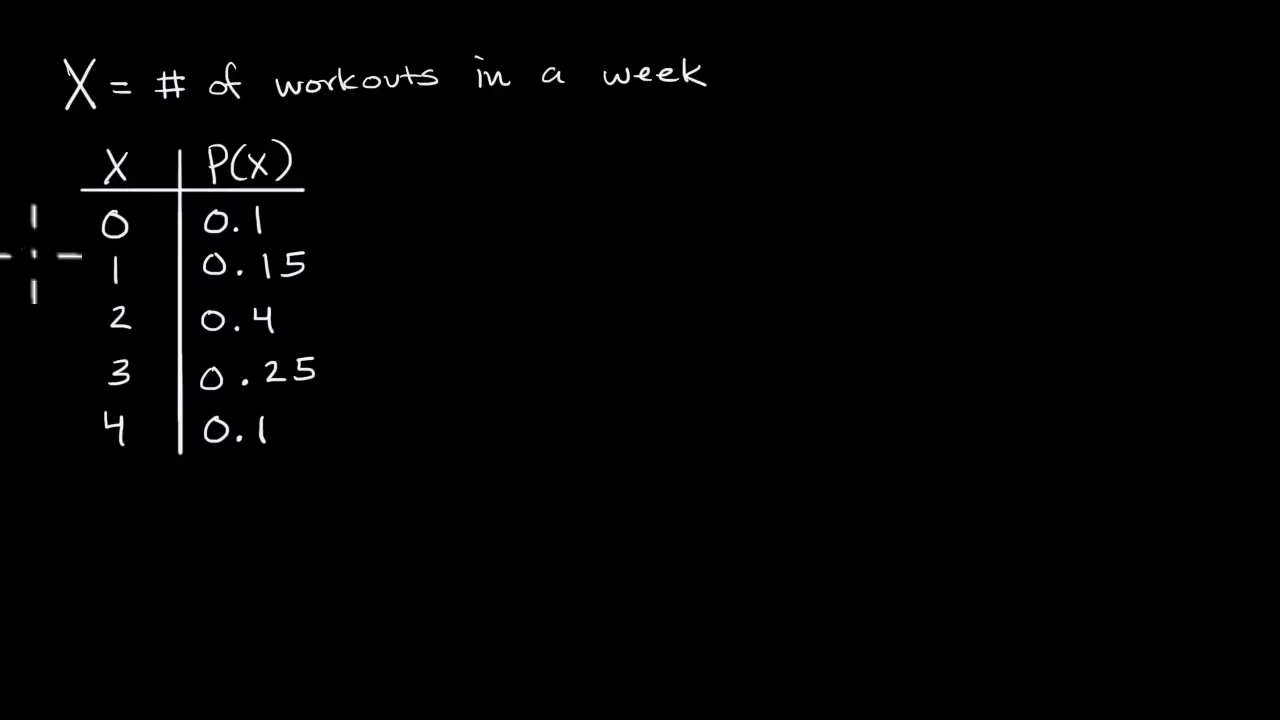 X = # of workouts in a week
X P(X)
0 0.1
1 0.15
2 0.4
3 0.25
4 0.1